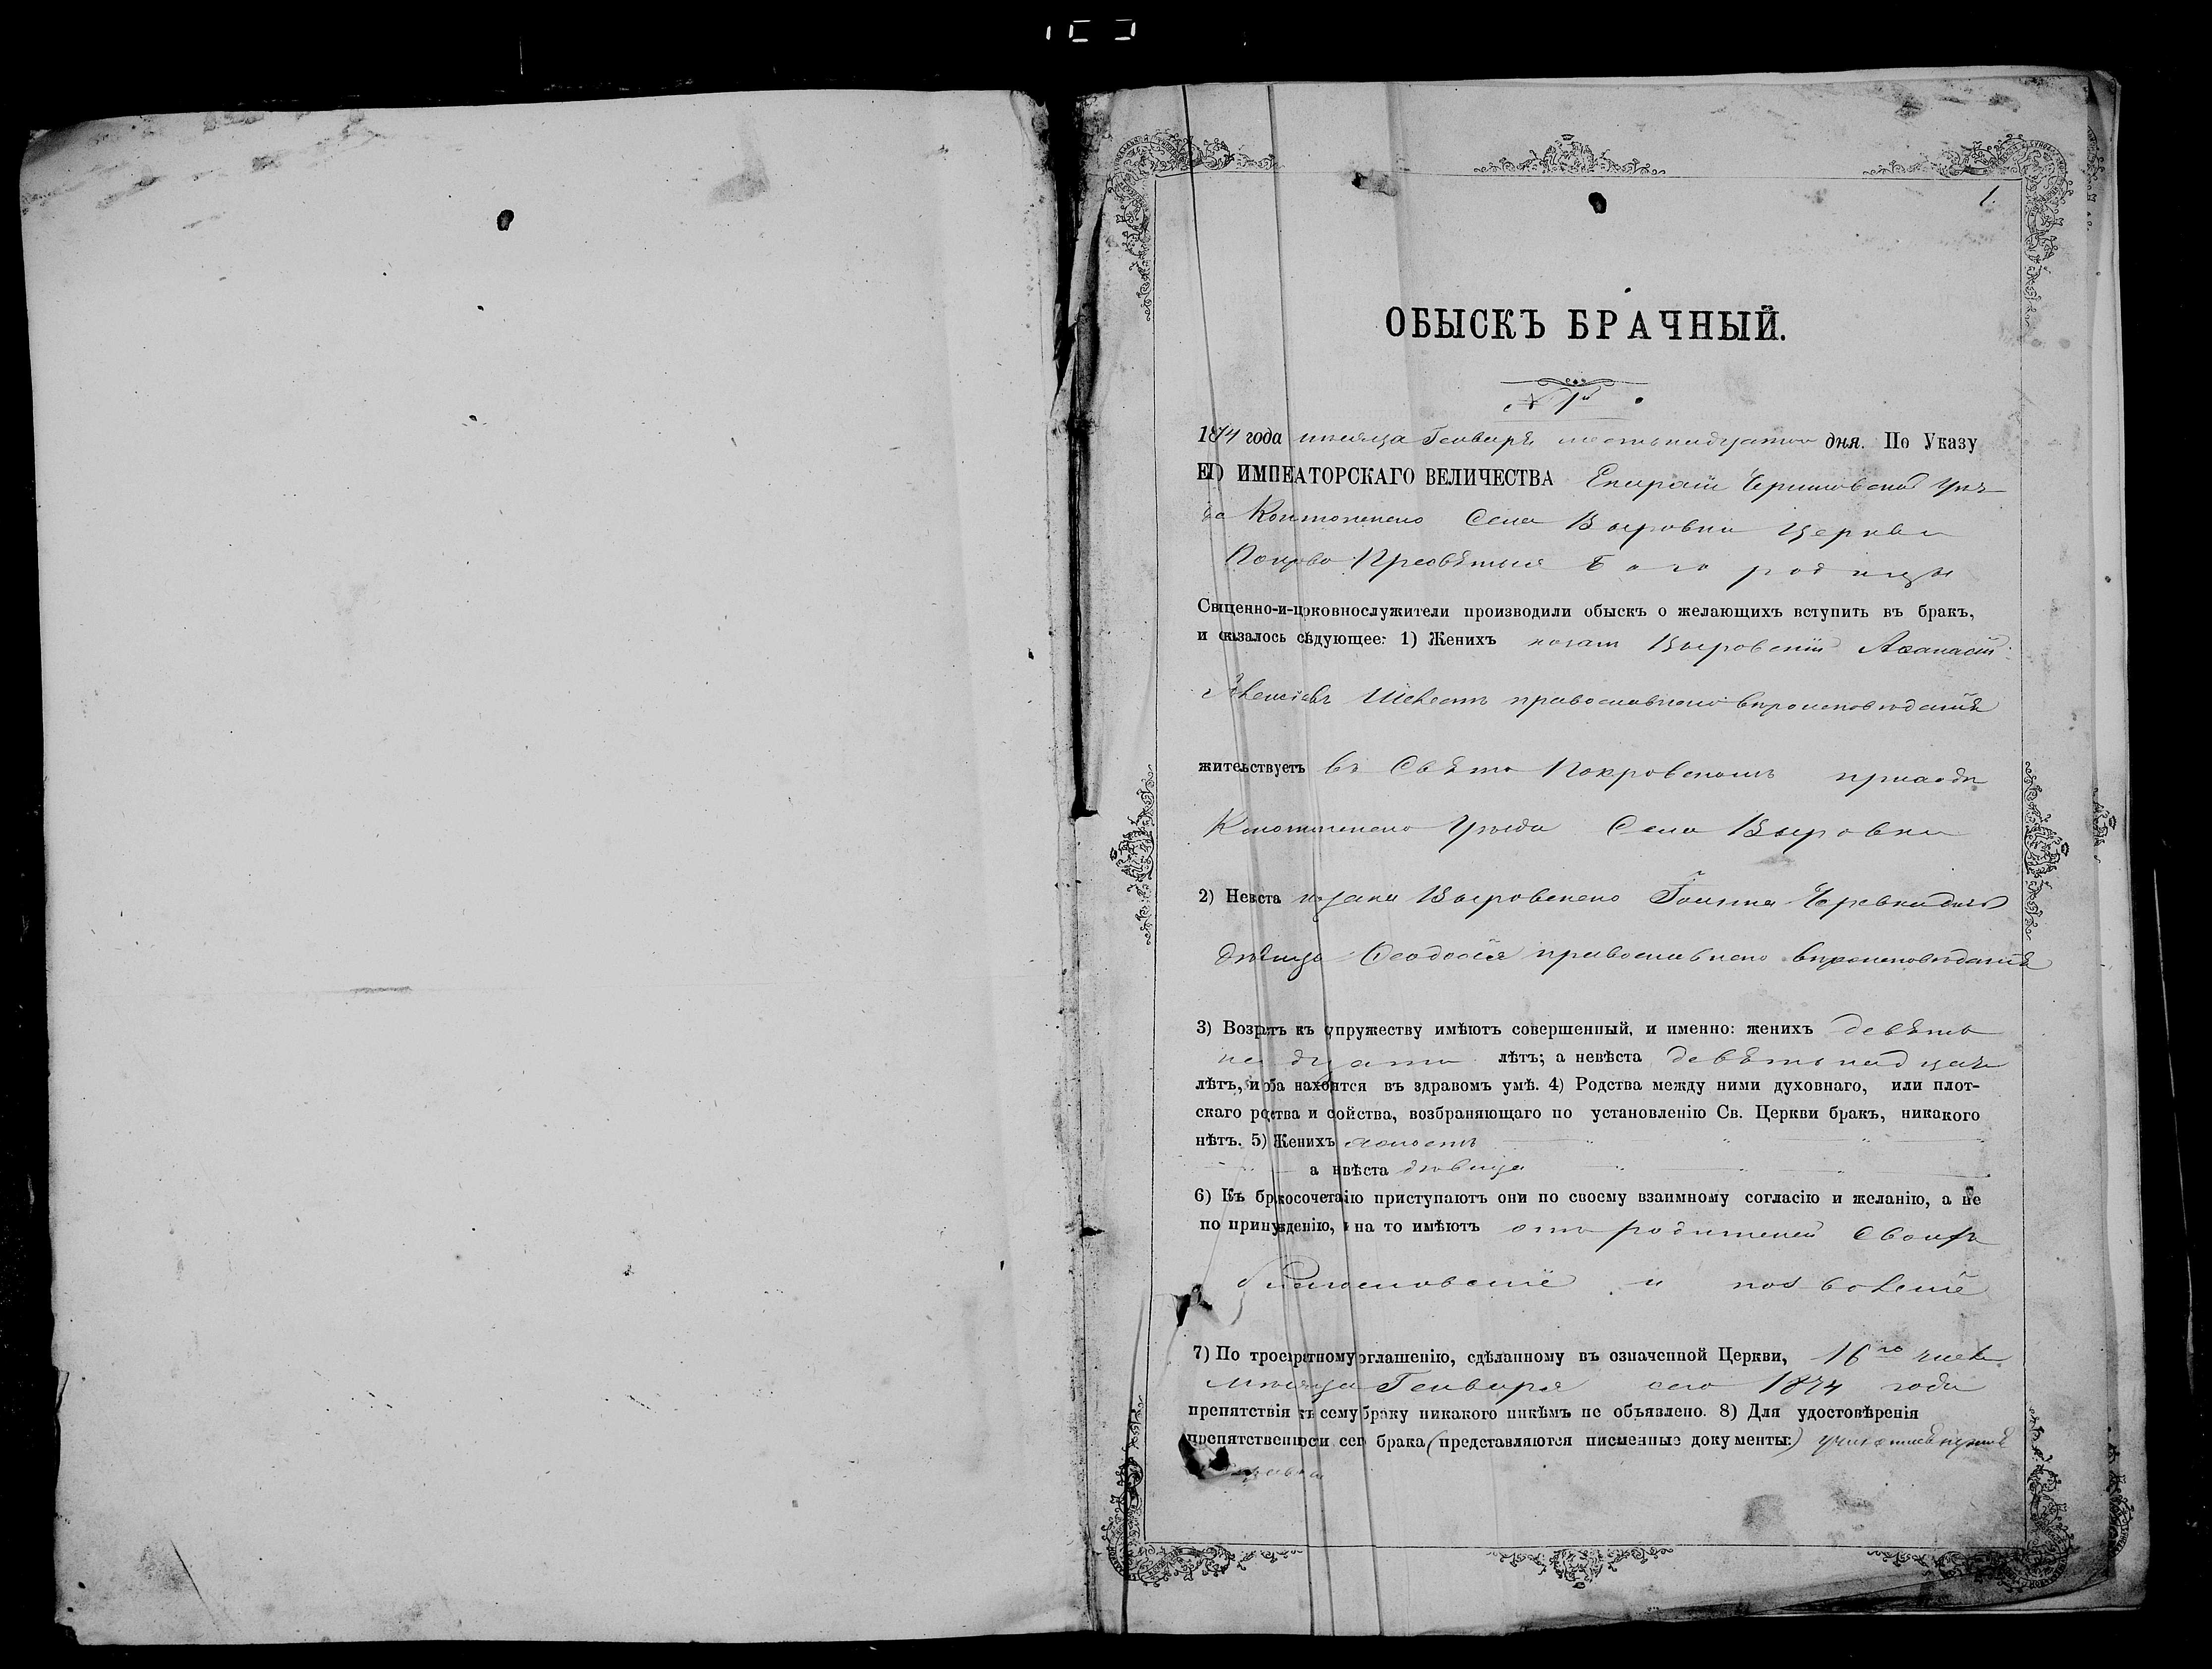 1.
ОБЫСКЪ БРАЧНЫЙ.
№ 1й
1874 года месяца Генваря шестьнадцатого дня. По Указу
ЕГО ИМПЕРАТОРСКАГО ВЕЛИЧЕСТВА Епархии Черниговской Уез-
да Конотопскаго Села Выровки Церкви
Покрово Пресвятыя Богородицы
Священно-и-церковнослужители производили обыскъ о желающихъ вступить въ бракъ,
и оказалось слѣдующее: 1) Женихъ козакъ Выровский Афанасий
Шевель православнаго вероисповедания
жительствуетъ въ Свято Покровскомъ приходе
Конотопскаго Уезда Села Выровки
2) Невѣста козака Выровскаго дочь
девица Феодосия православнаго вероисповедания
3) Возрастъ къ супружеству имѣютъ совершенный, и именно: женихъ девять
надцать лѣтъ; а невѣста девятьнадцать
лѣтъ, и оба находятся въ здравомъ умѣ. 4) Родства между ними духовнаго, или плот-
скаго родства и свойства, возбраняющаго по установленію Св. Церкви бракъ, никакого
нѣтъ. 5) Женихъ холостъ
а невѣста девица
6) Къ бракосочетанію приступаютъ они по своему взаимному согласію и желанію, а не
по принужденію, и на то имѣютъ отъ родителей своихъ
благословение и позволение
7) По троекратному оглашенію, сдѣланному въ означенной Церкви, 16го числа
месяца Генваря сего 1874 года
препятствія къ сему браку никакого никѣмъ не объявлено. 8) Для удостовѣренія
препятственности сего брака (представляются писменные документы:)